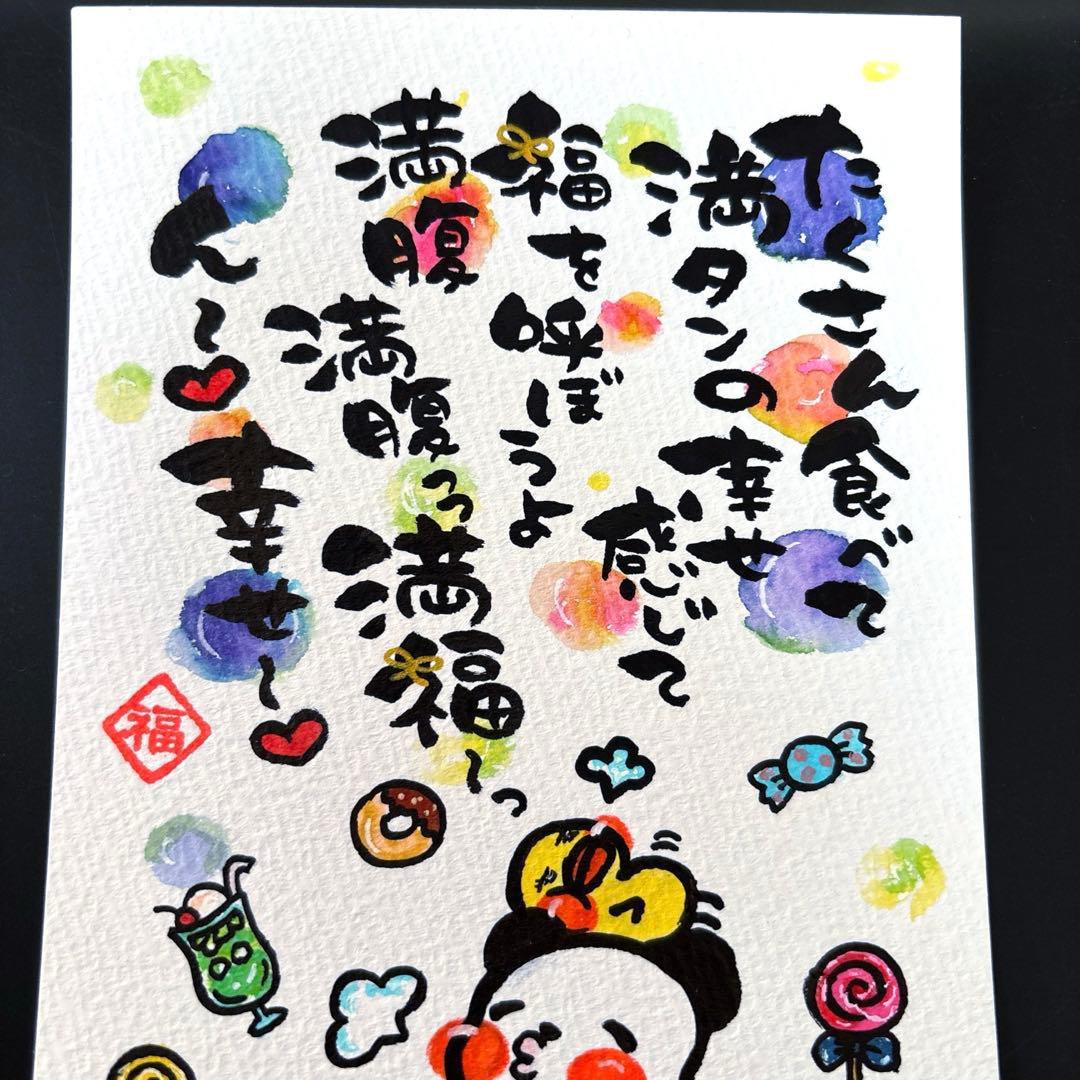 たくさん食べて
満タンの幸せ
感じて
福を呼ぼうよ
満腹
満腹っっ
満福〜っ
ん〜
幸せ〜
福